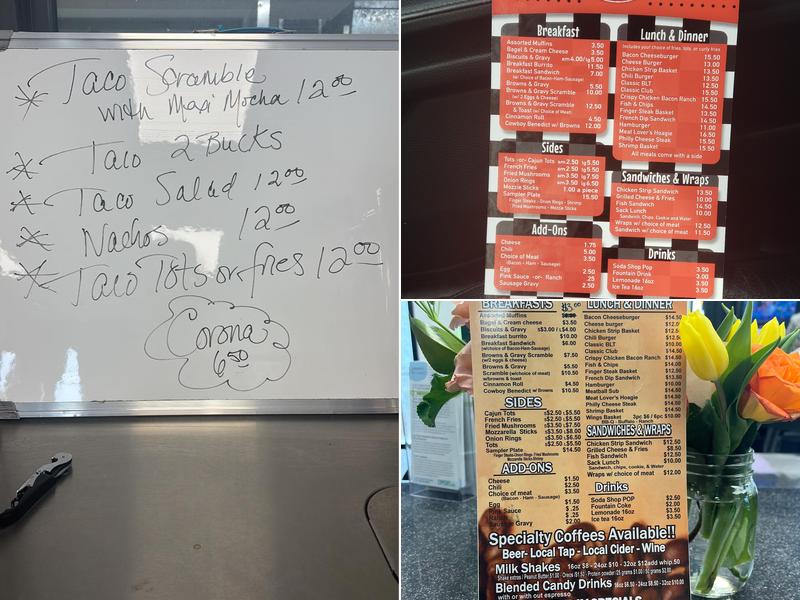 Taco Scramble
with Maxi Mocha 12.00
Taco 2 Bucks
Taco Salad 12.00
Nachos 12.00
Taco Tots or fries 12.00
Corona
6.50
Breakfast
Assorted Muffins 3.50
Bagel & Cream Cheese 3.50
Biscuits & Gravy sm 4.00/lg 5.00
Breakfast Burrito 11.50
Breakfast Sandwich 7.00
(w/ Choice of Bacon-Ham-Sausage)
Browns & Gravy 5.50
Browns & Gravy Scramble 10.00
(w/ 2 Eggs & Cheese)
Browns & Gravy Scramble 12.50
& Toast (w/ Choice of Meat)
Cinnamon Roll 4.50
Cowboy Benedict w/ Browns 12.00
Sides
Tots -or- Cajun Tots sm 2.50 lg 5.50
French Fries sm 2.50 lg 5.50
Fried Mushrooms sm 3.50 lg 7.50
Onion Rings sm 3.50 lg 6.50
Mozzie Sticks 1.00 a piece
Sampler Plate 15.50
Finger Steaks - Onion Rings - Shrimp
Fried Mushrooms - Mozzie Sticks
Add-Ons
Cheese 1.75
Chili 5.00
Choice of Meat 3.50
(Bacon - Ham - Sausage)
Egg 2.50
Pink Sauce -or- Ranch .25
Sausage Gravy 2.50
Lunch & Dinner
Includes your choice of fries, tots, or curly fries
Bacon Cheeseburger 15.50
Cheese Burger 13.00
Chicken Strip Basket 13.50
Chili Burger 13.50
Classic BLT 12.50
Classic Club 15.50
Crispy Chicken Bacon Ranch 15.50
Fish & Chips 14.50
Finger Steak Basket 13.50
French Dip Sandwich 14.50
Hamburger 11.00
Meat Lover's Hoagie 16.50
Philly Cheese Steak 15.50
Shrimp Basket 15.50
All meals come with a side
Sandwiches & Wraps
Chicken Strip Sandwich 13.50
Grilled Cheese 10.00
Fish Sandwich 14.50
Sack Lunch 10.00
Sandwich, Chips, Cookie and Water
Wraps w/ choice of meat 12.50
Sandwich w/ choice of meat 11.50
Drinks
Soda Shop Pop 3.50
Fountain Drink 3.00
Lemonade 16oz 3.50
Ice Tea 16oz 3.50
BREAKFASTS
Assorted Muffins
Bagel & Cream cheese $3.50
Biscuits & Gravy s$3.00 / L$4.00
Breakfast burrito $10.00
Breakfast Sandwich $6.00
(w/choice of Bacon-Ham-Sausage)
Browns & Gravy Scramble $7.50
(w/2 eggs & cheese)
Browns & Gravy $5.50
Scramble (w/choice of meat) $10.50
w/browns & toast
Cinnamon Roll $4.50
Cowboy Benedict w/ Browns $10.50
SIDES
Cajun Tots s$2.50 L$5.50
French Fries s$2.50 L$5.50
Fried Mushrooms s$3.50 L$7.50
Mozzarella Sticks s$3.50 L$8.00
Onion Rings s$3.50 L$6.50
Tots s$2.50 L$5.50
Sampler Plate $14.50
Finger Steaks-Onion Rings- Fried Mushrooms
Mozzarella Sticks-Shrimp
ADD-ONS
Cheese $1.50
Chili $2.50
Choice of meat $3.50
(Bacon - Ham - Sausage)
Egg
Pink Sauce $ .25
$ .25
Sausage Gravy $2.00
LUNCH & DINNER
Bacon Cheeseburger $14.50
Cheese burger $12.00
Chicken Strip Basket $12.50
Chili Burger $12.50
Classic BLT $10.00
Classic Club $14.50
Crispy Chicken Bacon Ranch $14.50
Fish & Chips $14.00
Finger Steak Basket $12.50
French Dip Sandwich $13.50
Hamburger $10.00
Meatball Sub $14.50
Meat Lover's Hoagie $14.50
Philly Cheese Steak $14.50
Shrimp Basket $14.50
Wings Basket 3pc $6 / 6pc $10.00
SANDWICHES & WRAPS
Chicken Strip Sandwich $12.50
Grilled Cheese & Fries $8.50
Fish Sandwich $12.50
Sack Lunch $10.00
Sandwich, chips, cookie, & Water
Wraps w/ choice of meat $12.00
Drinks
Soda Shop POP $2.50
Fountain Coke $2.00
Lemonade 16oz $3.50
Ice tea 16oz $3.50
Specialty Coffees Available!!
Beer- Local Tap - Local Cider - Wine
Milk Shakes 16oz $8 - 24oz $10 - 32oz $12 add whip .50
Blended Candy Drinks 16oz $6.50 - 24oz $8.50 - 32oz $10.00
with or with out espresso